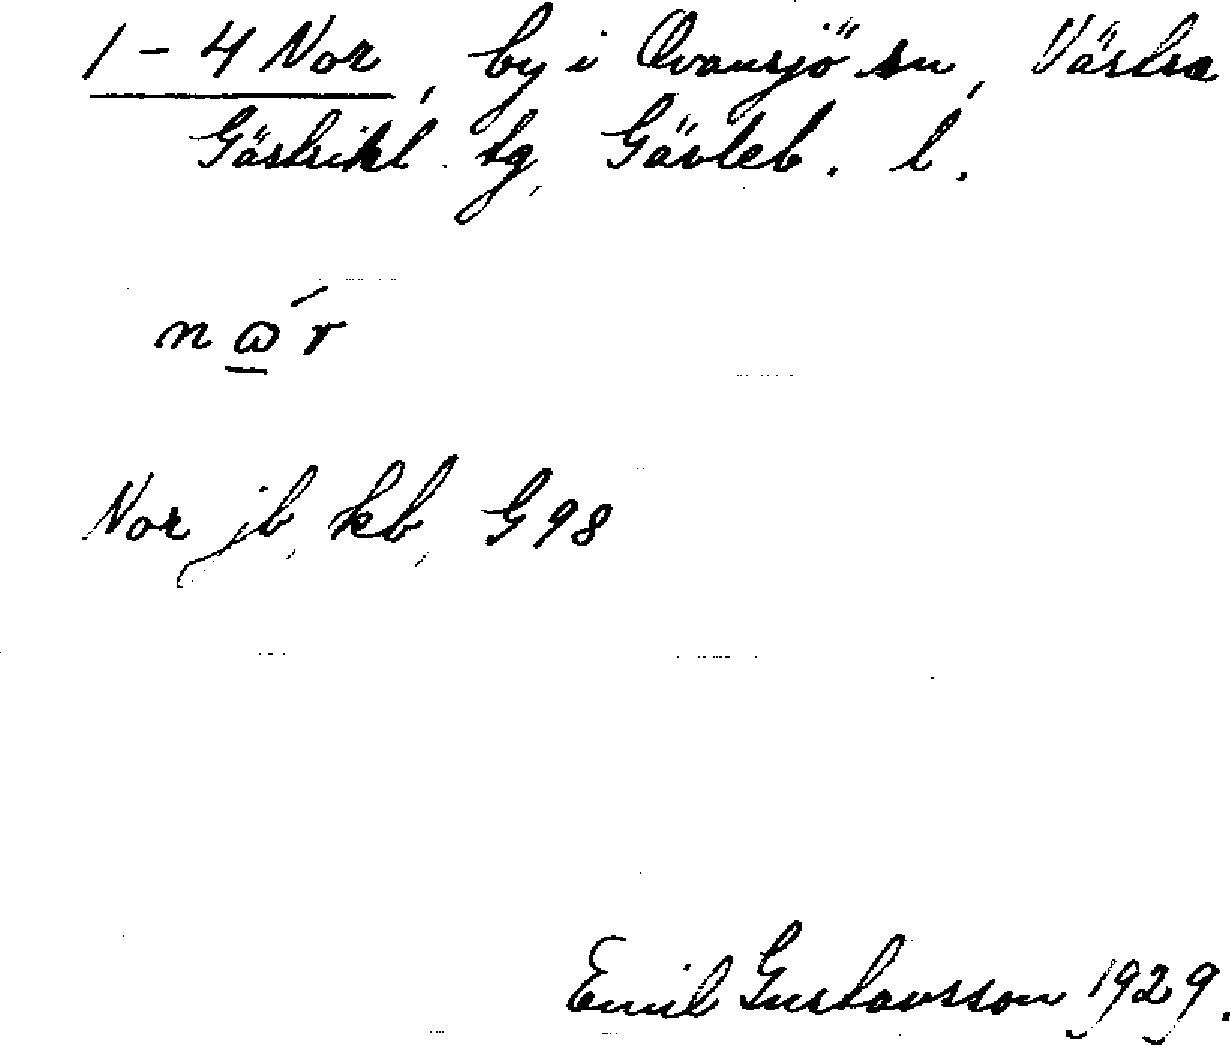 1-4 Nor, by i Ovansjö sn, Västra
Gästrikl. tg, Gävleb. l.
n ώ r
Nor jb, kb, G98
Emil Gustavsson 1929.